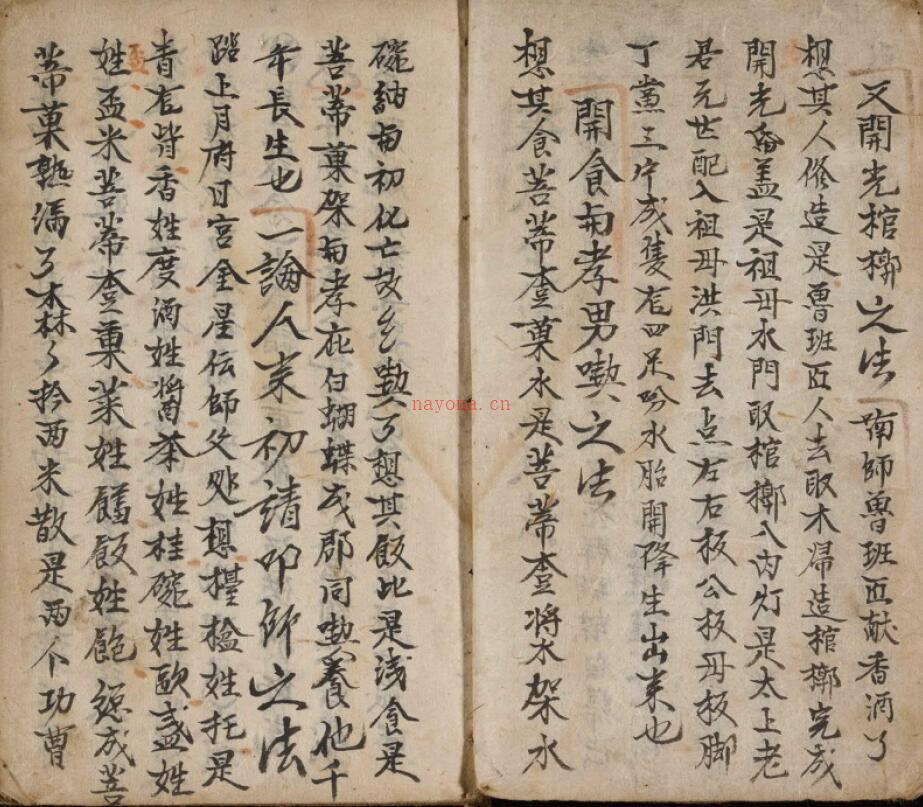 又開光棺槨之法 喃師魯班匠献香酒了
想其人修造是魯班匠人去取木帰造棺槨完成
開光盖是祖母水門取棺槨入内灯是太上老
君元世配入祖母洪門去点左右板公板母板脚
丁黨三片成隻有四足吩水胎開降生山来也
開食甪孝男喫之法
想其食菩蒂查菓水是菩蒂查將水架水
碗紬甪初化亡故乡喫了想其飯比是浅食是
菩蒂菓架甪孝在白蝴蝶成郡同喫養他千
年長生也 一論人来初請叩師之法
踏上月府日宮金星伝師父処想檯橙姓托是
青有皆香姓度酒姓醬茶姓桂碗姓歐盏姓
姓盃米菩蒂查菓菜姓饍飯姓飽總成菩
蒂菓熟满了森了於西米散是两个功曹
nayona.cn